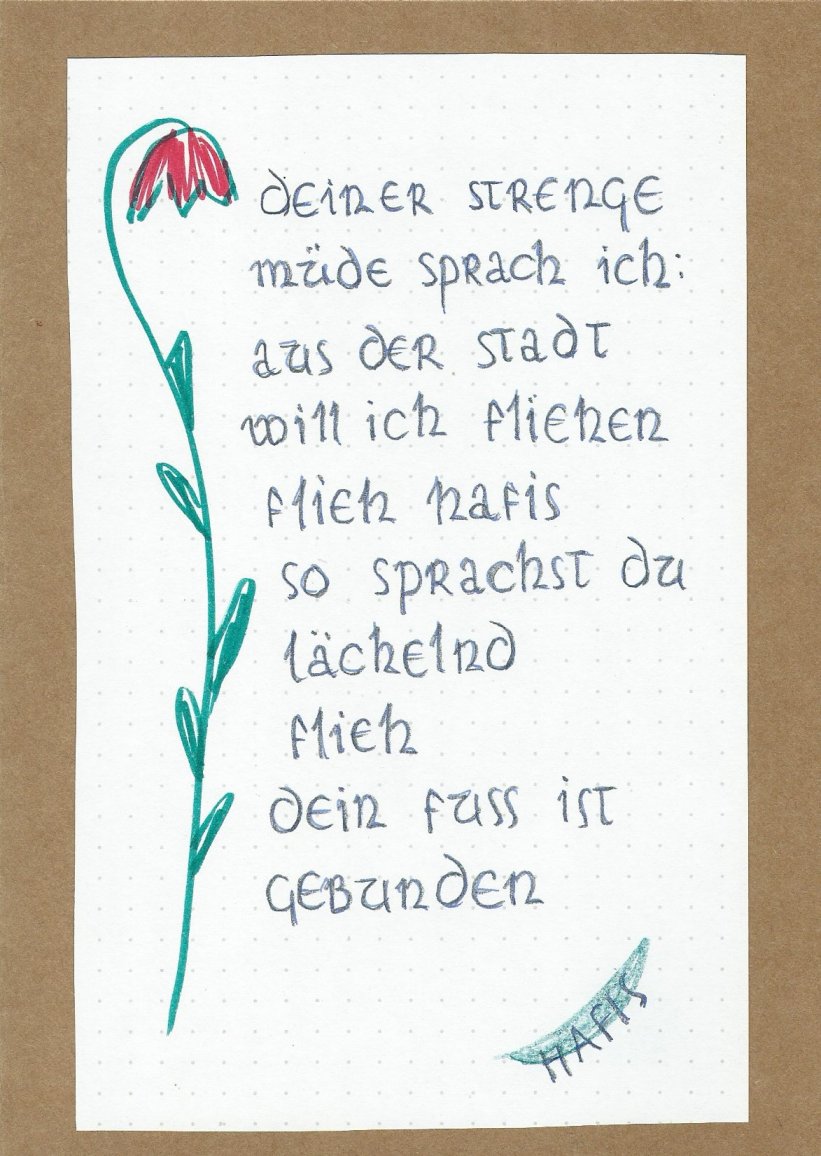 deiner strenge
müde sprach ich:
aus der stadt
will ich fliehen
flieh hafis
so sprachst du
lächelnd
flieh
dein fuss ist
gebunden
HAFIS